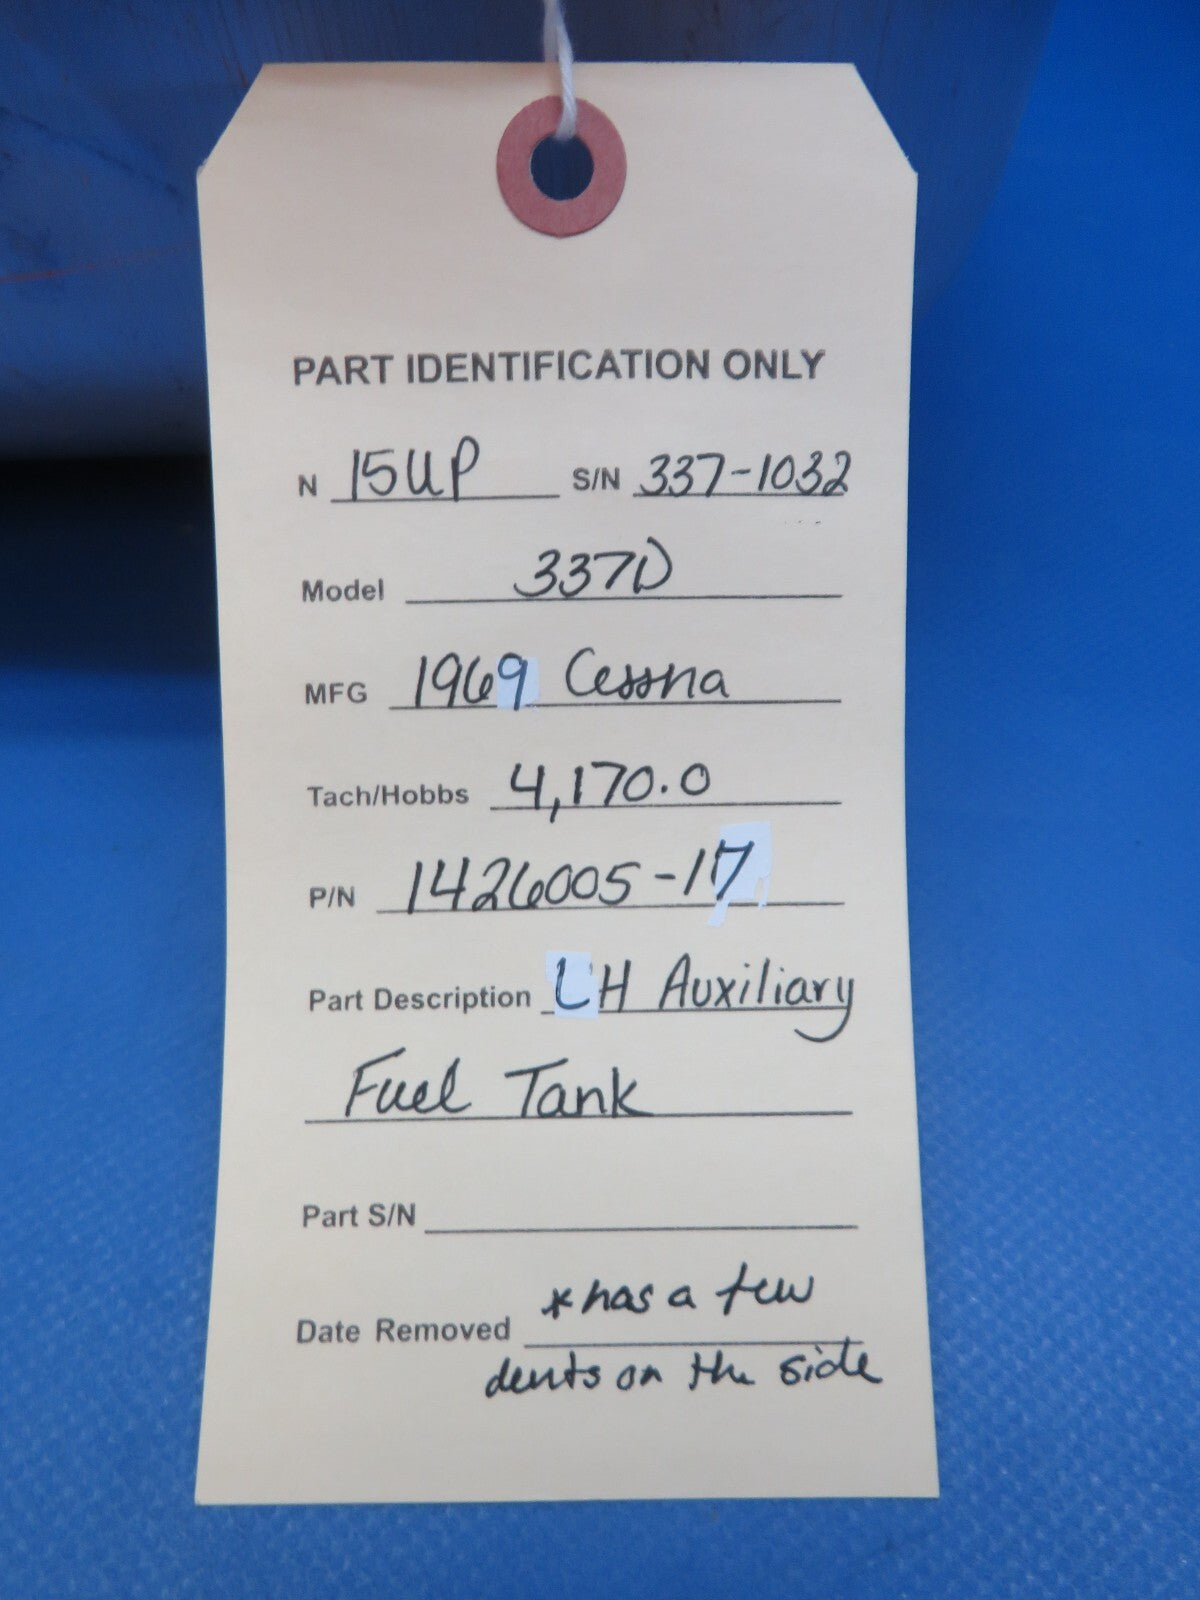 PART IDENTIFICATION ONLY
N 15UP S/N 337-1032
Model 337D
MFG 1969 Cessna
Tach/Hobbs 4,170.0
P/N 1426005-17
Part Description LH Auxiliary
Fuel Tank
Part S/N
*has a few
Date Removed
dents on the side